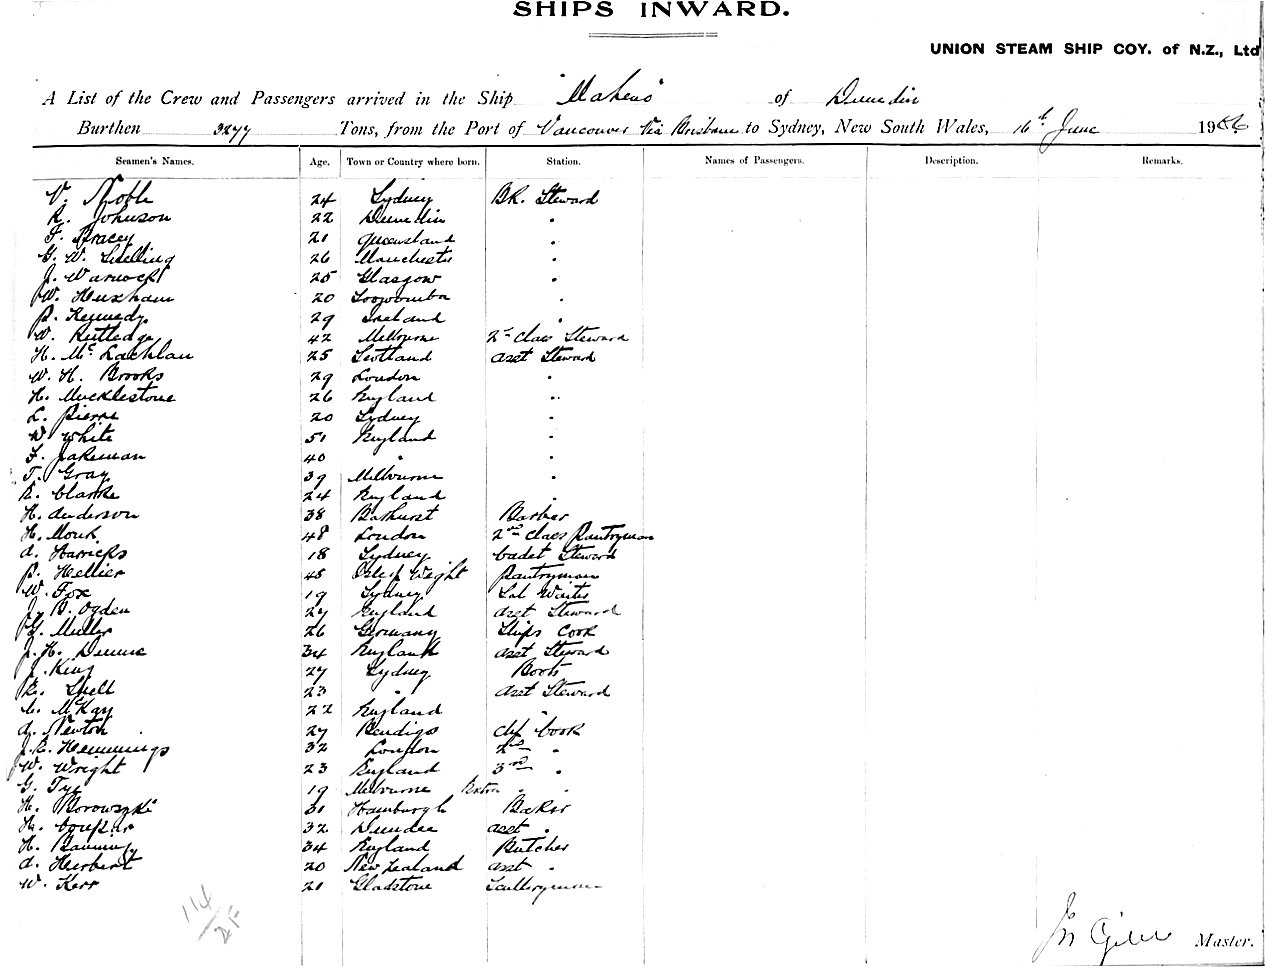 SHIPS INWARD.
UNION STEAM SHIP COY. of N.Z., Ltd
A List of the Crew and Passengers arrived in the Ship "Maheno" of Dunedin
Burthen 3277 Tons, from the Port of Vancouver via Brisbane to Sydney, New South Wales, 16th June 1906
Seamen's Names. Age. Town or Country where born. Station. Names of Passengers. Description. Remarks.
V. Noble 24 Sydney BR. Steward
R. Johnson 22 Dunedin "
F. Bracey 21 Queensland "
G. W. Snelling 26 Manchester "
J. Warnock 25 Glasgow "
W. Huxham 20 Toowoomba "
P. Kennedy 29 Ireland "
W. Rutledge 42 Melbourne 2nd Class Steward
H. McLachlan 25 Scotland asst Steward
W. H. Brooks 29 London "
H. Mucklestone 26 England "
L. Pierre 20 Sydney "
W White 51 England "
F. Jakeman 40 " "
T. Gray 39 Melbourne "
E. Clarke 24 England "
H. Anderson 38 Bathurst Barber
H. Monk. 48 London 2nd Class Pantryman
A. Harricks 18 Sydney Cadet Steward
P. Hellier 45 Isle of Wight Pantryman
W. Fox 19 Sydney Sal Waiter
J. B. Ogden 27 England asst Steward
G. Muller 26 Germany Ships Cook
J. H. Dennie 34 England asst Steward
J. King 27 Sydney Boots
E. Snell 23 " asst Steward
C. McKay 22 England "
A. Newton 27 Bendigo Chf Cook
J. E. Hemmings 32 London 2nd "
W. Wright 23 England 3rd "
G. Tye 19 Melbourne "
H. Borowszki 31 Hamburgh Baker
H. Coupar 32 Dundee asst "
H. Banning 34 England Butcher
A. Herbert 20 New Zealand asst "
W. Kerr 21 Gladstone Sculleryman
114
2F
Master.